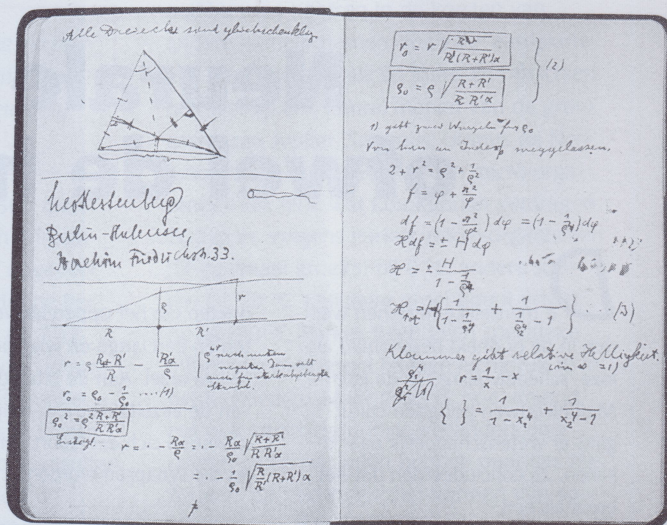 Alle Dreiecke sind gleichschenklig
Leo Kestenberg
Berlin-Halensee,
Joachim Friedrichstr. 33.
ρ r
R R'
r = ρ (R+R')/R − R'α/ρ
ρ nach unten
negativ. Dann gilt
auch für stark abgelenkten
Strahl.
r₀ = ρ₀ − 1/ρ₀ .... (1)
ρ₀² = ρ² (R+R')/(R R'α)
r = · − Rα/ρ = · − Rα/ρ₀ √((R+R')/(R R'α))
= · − 1/ρ₀ √(R/R' (R+R')α)
r₀ = r √(R/(R'(R+R')α))
ρ₀ = ρ √((R+R')/(R R'α))
} (2)
1) gibt zwei Wurzeln für ρ₀
Von hier an Index₀ weggelassen.
2 + r² = ρ² + 1/ρ²
f = φ + π²/φ
df = (1 − π²/φ²) dφ = (1 − 1/ρ⁴) dφ
H df = ± H dφ
H = ± H/(1 − 1/ρ⁴)
H tot = H { 1/(1 − 1/ρ₁⁴) + 1/(1/ρ₂⁴ − 1) } ... (3)
Klammer gibt relative Helligkeit.
(in ∞ = 1)
r = 1/x − x
{ } = 1/(1 − x₁⁴) + 1/(x₂⁴ − 1)